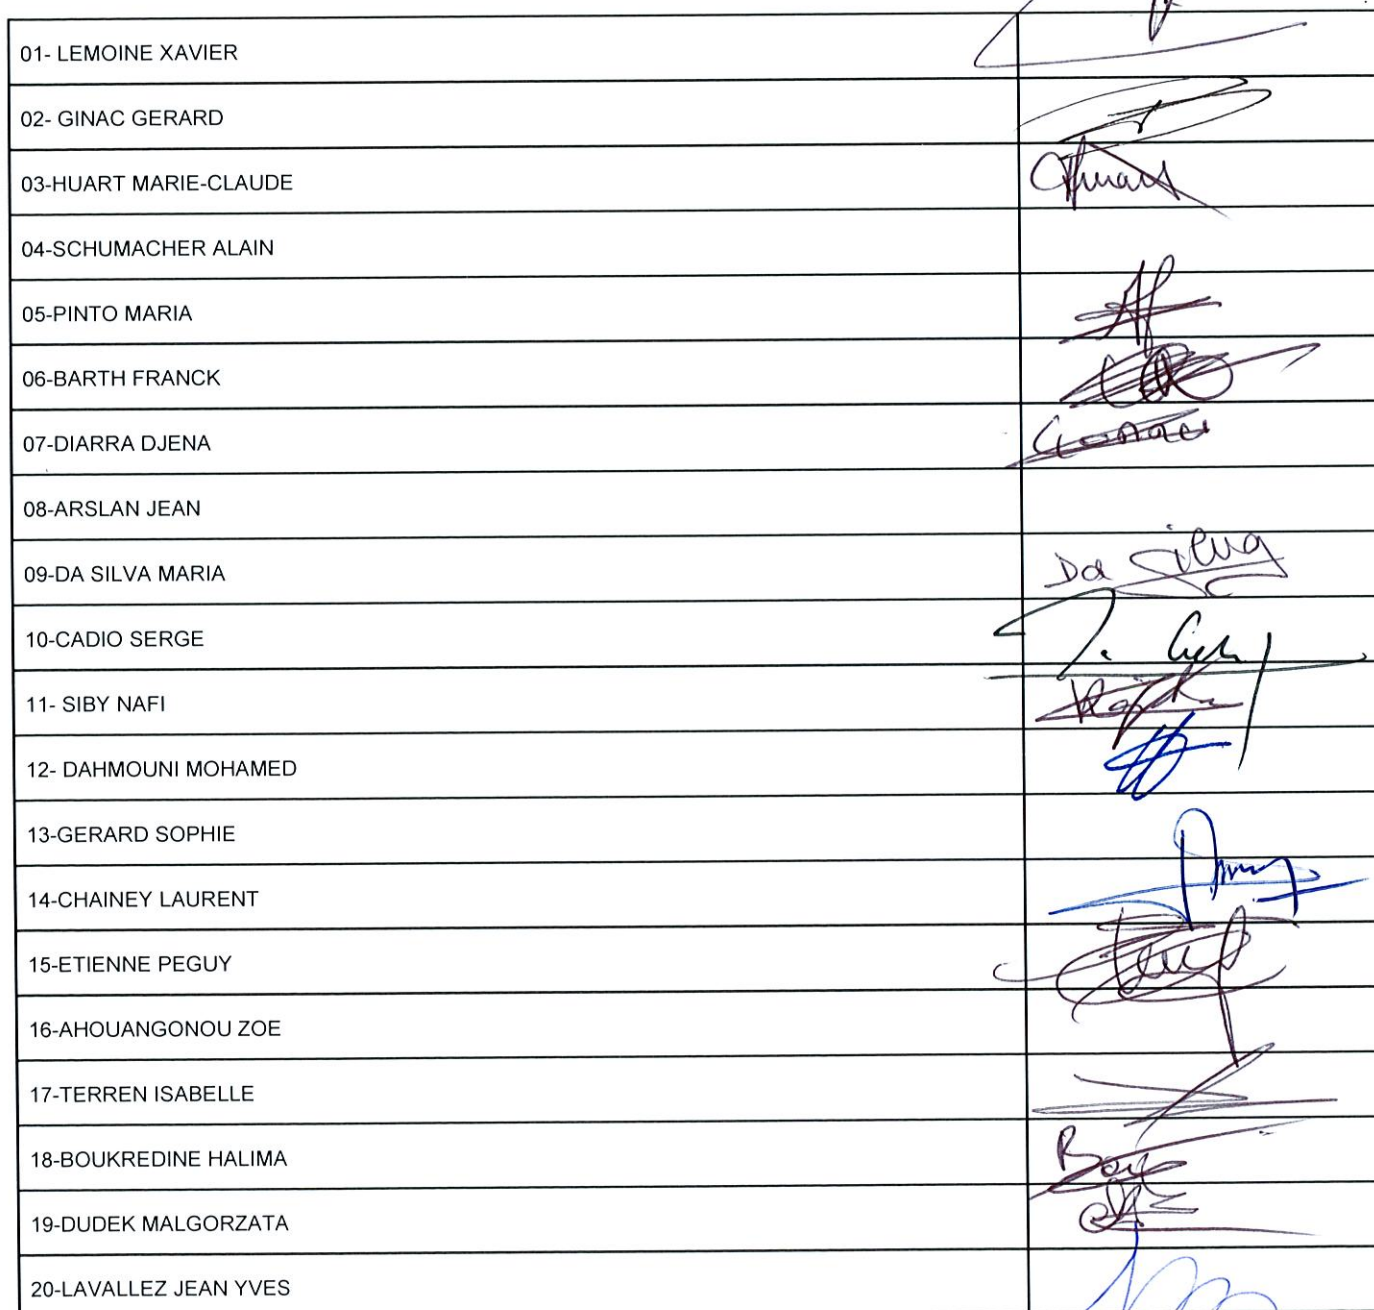 01- LEMOINE XAVIER
02- GINAC GERARD
03-HUART MARIE-CLAUDE
04-SCHUMACHER ALAIN
05-PINTO MARIA
06-BARTH FRANCK
07-DIARRA DJENA
08-ARSLAN JEAN
09-DA SILVA MARIA
Da Silva
10-CADIO SERGE
11- SIBY NAFI
12- DAHMOUNI MOHAMED
13-GERARD SOPHIE
14-CHAINEY LAURENT
15-ETIENNE PEGUY
16-AHOUANGONOU ZOE
17-TERREN ISABELLE
18-BOUKREDINE HALIMA
19-DUDEK MALGORZATA
20-LAVALLEZ JEAN YVES